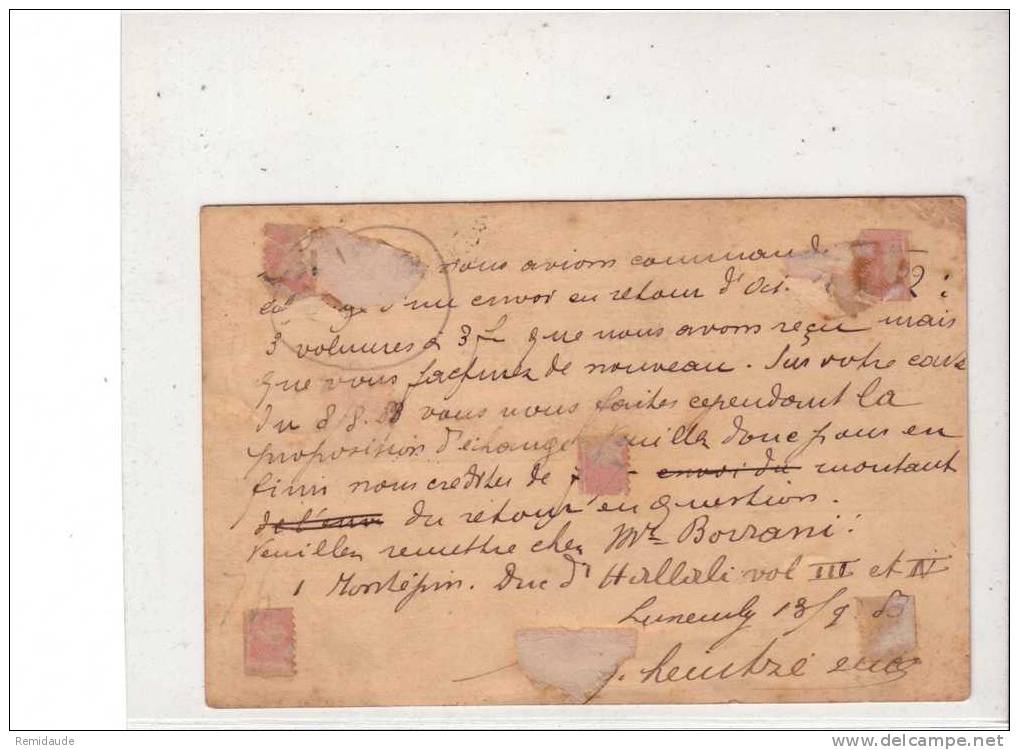 nous avions command
d'un envoi en retour d'Oct. 2 :
3 volumes à 3 f que nous avons reçu mais
que vous facturez de nouveau. Sur votre carte
du 8/9. 83 vous nous faites cependant la
proposition d'échange. Veuillez donc pour en
finir nous créditer de envoi du montant
de l'envoi du retour en question.
Veuillez remettre chez Mr Borrani :
1 Montépin. Duc d' Hallali vol III et IV
13/9 83